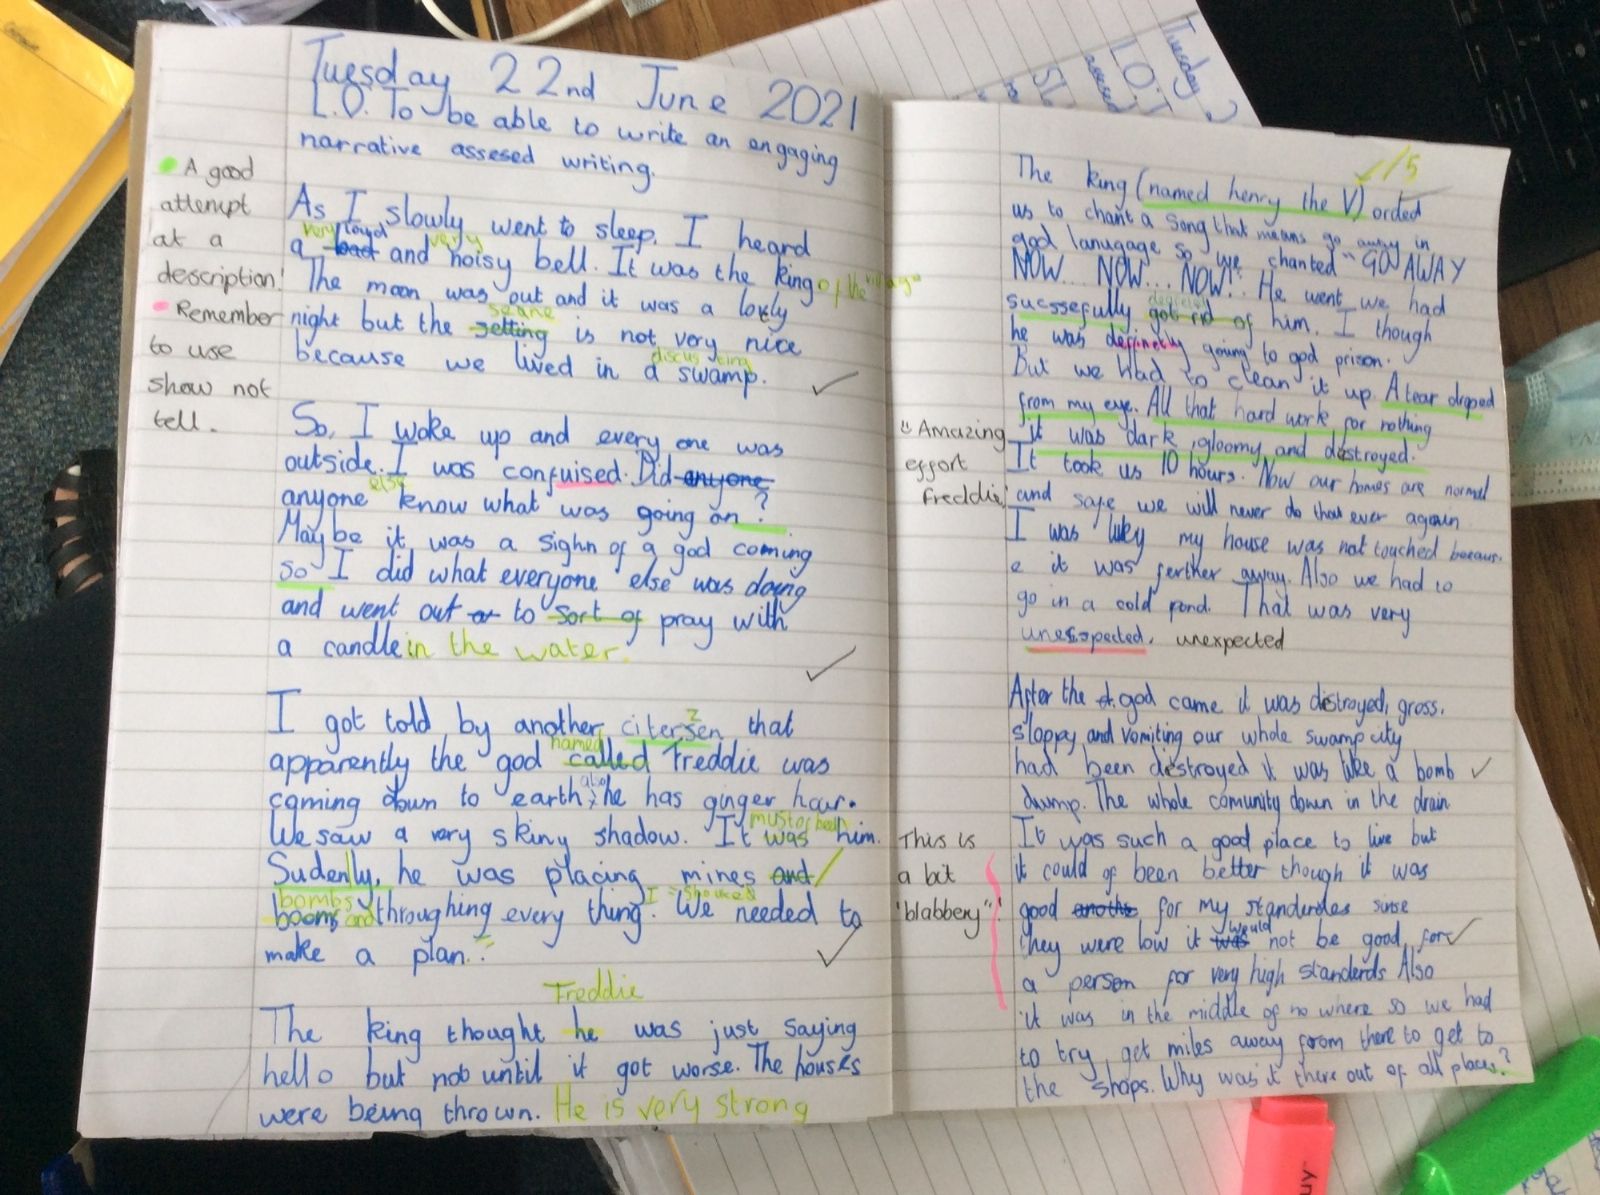 Tuesday 22nd June 2021
L.O. To be able to write an engaging
narrative assesed writing.
• A good
attempt
at a
description!
• Remember
to use
show not
tell.
As I slowly went to sleep. I heard
very loud very
a and noisy bell. It was the king of the village
The moon was out and it was a lovly
seane
night but the setting is not very nice
discusting
because we lived in a swamp.
So, I woke up and every one was
outside. I was confuised. Did anyone
else
anyone know what was going on?
Maybe it was a sighn of a god coming
so I did what everyone else was doing
and went out or to sort of pray with
a candle in the water.
z
I got told by another citersen that
named
apparently the god called Freddie was
also
coming down to earth, he has ginger hair.
mustof been
We saw a very skiny shadow. It was him.
Sudenly, he was placing mines and
bombs I shouted
booms and throughing every thing. We needed to
make a plan."
Freddie
The king thought he was just saying
hello but not until it got worse. The houses
were being thrown. He is very strong
/5
The king (named henry the V) orded
us to chant a song that means go away in
god lanugage so we chanted "GO AWAY
NOW... NOW... NOW!". He went we had
sucssefully got rid of him. I though
he was definetly going to god prison.
But we Had to clean it up. A tear droped
from my eye. All that hard work for nothing
it was dark, gloomy and destroyed.
It took us 10 hours. Now our homes are normal
and safe we will never do that ever again
I was luky my house was not touched becaus
e it was ferther away. Also we had to
go in a cold pond. That was very
unexspected. unexpected
Amazing
effort
Freddie!
After the god came it was destroyed, gross,
sloppy and vomiting our whole swamp city
had been destroyed it was like a bomb
dump. The whole comunity down in the drain
It was such a good place to live but
it could of been better though it was
good for my standerdes sinse
would
they were low it was not be good for
a person for very high standerds Also
it was in the middle of no where so we had
to try get miles away from there to get to
the shops. Why was it there out of all places?
This is
a bit
"blabbery"!
Tuesday 2
L.O. T
assesed